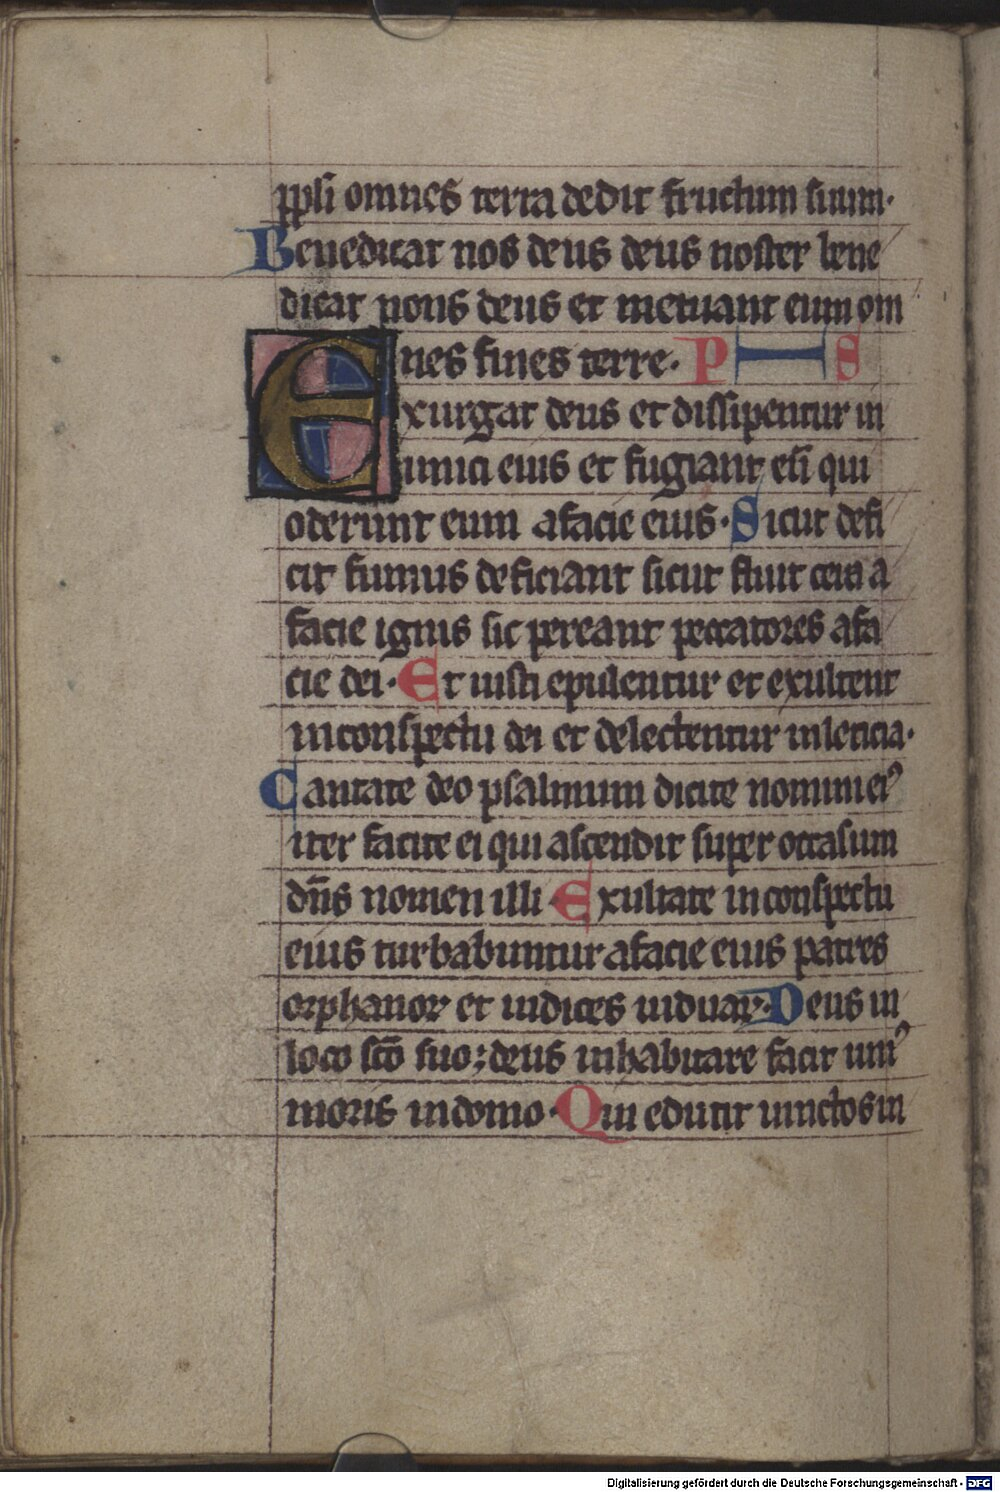 ppli omnes terra dedit fructum suum·
Benedicat nos deus deus noster bene
dicat nons deus et metuant eum om
nes fines terre· PS
Exurgat deus et dissipentur in
imici eius et fugiant eū qui
oderunt eum afacie eius· Sicut defi
cit fumus deficiant sicut fluit cera a
facie ignis sic pereant peccatores afa
cie dei· Et iusti epulentur et exultent
inconspectu dei et delectentur inleticia·
Cantate deo psalmum dicite nomini eiꝰ
iter facite ei qui ascendit super occasum
dn̄s nomen illi· Exultate inconspectu
eius turbabuntur afacie eius patres
orphanoꝝ et iudices uiduaꝝ· Deus in
loco sc̄o suo; deus inhabitare facit uniꝰ
moris indomo· Qui educit uinctos in
Digitalisierung gefördert durch die Deutsche Forschungsgemeinschaft - DFG